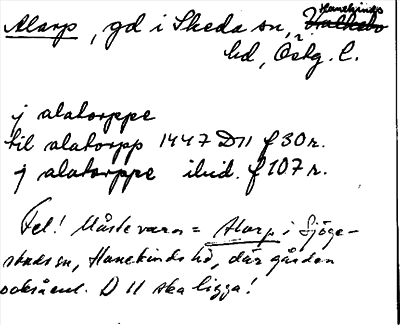 Alarp, gd i Skeda sn, Hanekinds
hd, Östg. l.
j alatorppe
til alatorpp 1447 D11 f 30 r.
j alatorppe ibid. f 107 r.
Fel! Måste vara = Alarp i Sjöge-
stads sn, Hanekinds hd, där gården
också enl. D 11 ska ligga!